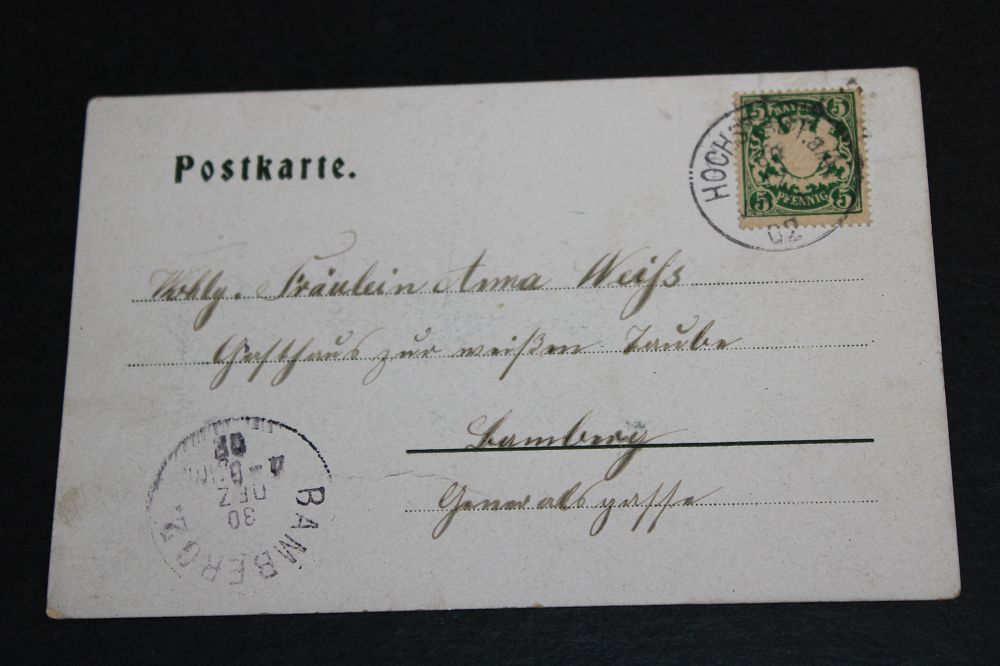 Postkarte.
5 BAYERN 5
5 PFENNIG 5
HOCH
02
Wohlg. Fräulein Anna Weiß
Gasthaus zur weißen Taube
Bamberg
Generalsgasse
BAMBERG 2.
30
DEZ
4
02